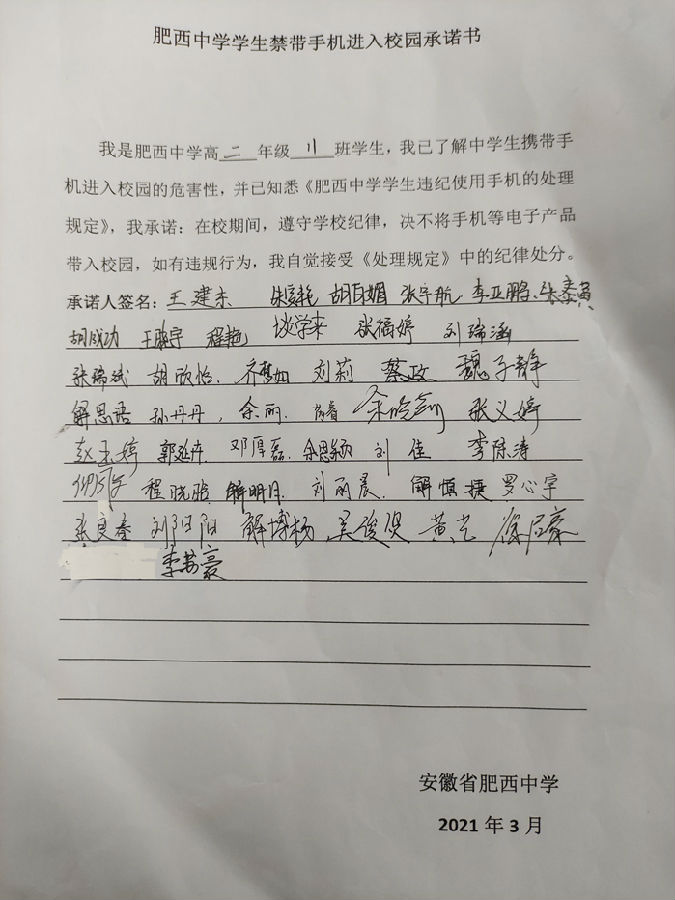 肥西中学学生禁带手机进入校园承诺书
我是肥西中学高二年级11班学生，我已了解中学生携带手
机进入校园的危害性，并已知悉《肥西中学学生违纪使用手机的处理
规定》，我承诺：在校期间，遵守学校纪律，决不将手机等电子产品
带入校园，如有违规行为，我自觉接受《处理规定》中的纪律处分。
承诺人签名：王建东 张宇航 李亚鹏
胡成功 程艳 谈学来 张福婷 刘瑞涵
张瑞斌 胡欣怡 齐梦如 刘莉 蔡政 魏子静
解思语 孙丹丹 余丽 张义婷
赵玉婷 郭延卉 邓厚磊 刘佳 李陈涛
程晓脂 解明月 刘雨晨 解慎捷 罗心宇
张良春 刘阳阳 解博杨 吴俊贤 黄艺
李若豪
安徽省肥西中学
2021年3月